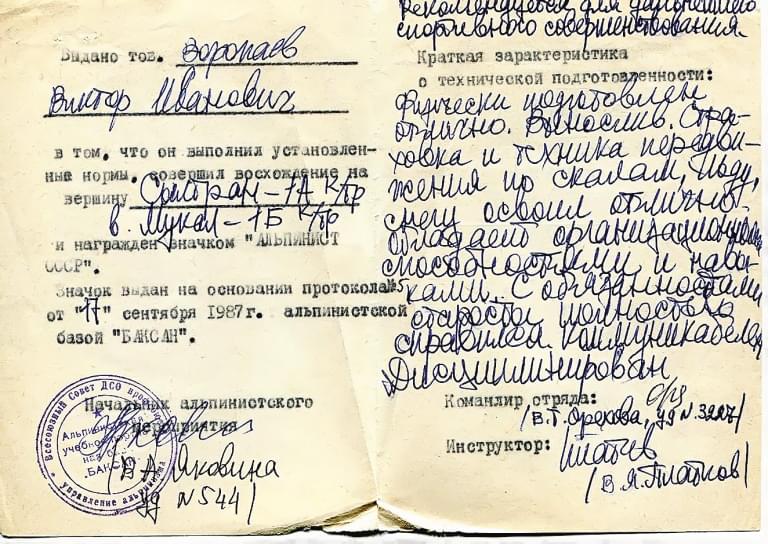 Выдано тов. Воропаев
Виктор Иванович
в том, что он выполнил установлен-
ные нормы, совершил восхождение на
вершину Сритран-1А к/тр
в. Мукал-1Б к/тр
и награжден значком "АЛЬПИНИСТ
СССР".
Значок выдан на основании протокола №5
от "17" сентября 1987г. альпинистской
базой "БАКСАН".
Начальник альпинистского
мероприятия
/В.А. Яковина
уд N 544/
Всесоюзный Совет ДСО
управление альпинизма
БАКСАН
рекомендуется для дальнейшего
спортивного совершенствования.
Краткая зарактеристика
о технической подготовленности:
Физически подготовлен
отлично. Вынослив. Стра-
ховка и техника передви-
жения по скалам, льду,
снегу освоил отлично.
Обладает организационными
способностями и навы-
ками. С обязанностями
старосты полностью
справился. Коммуникабелен
Дисциплинирован
Командир отряда:
/В.Т. Орехова, уд N.3227/
Инструктор:
/В.Я. Платков/